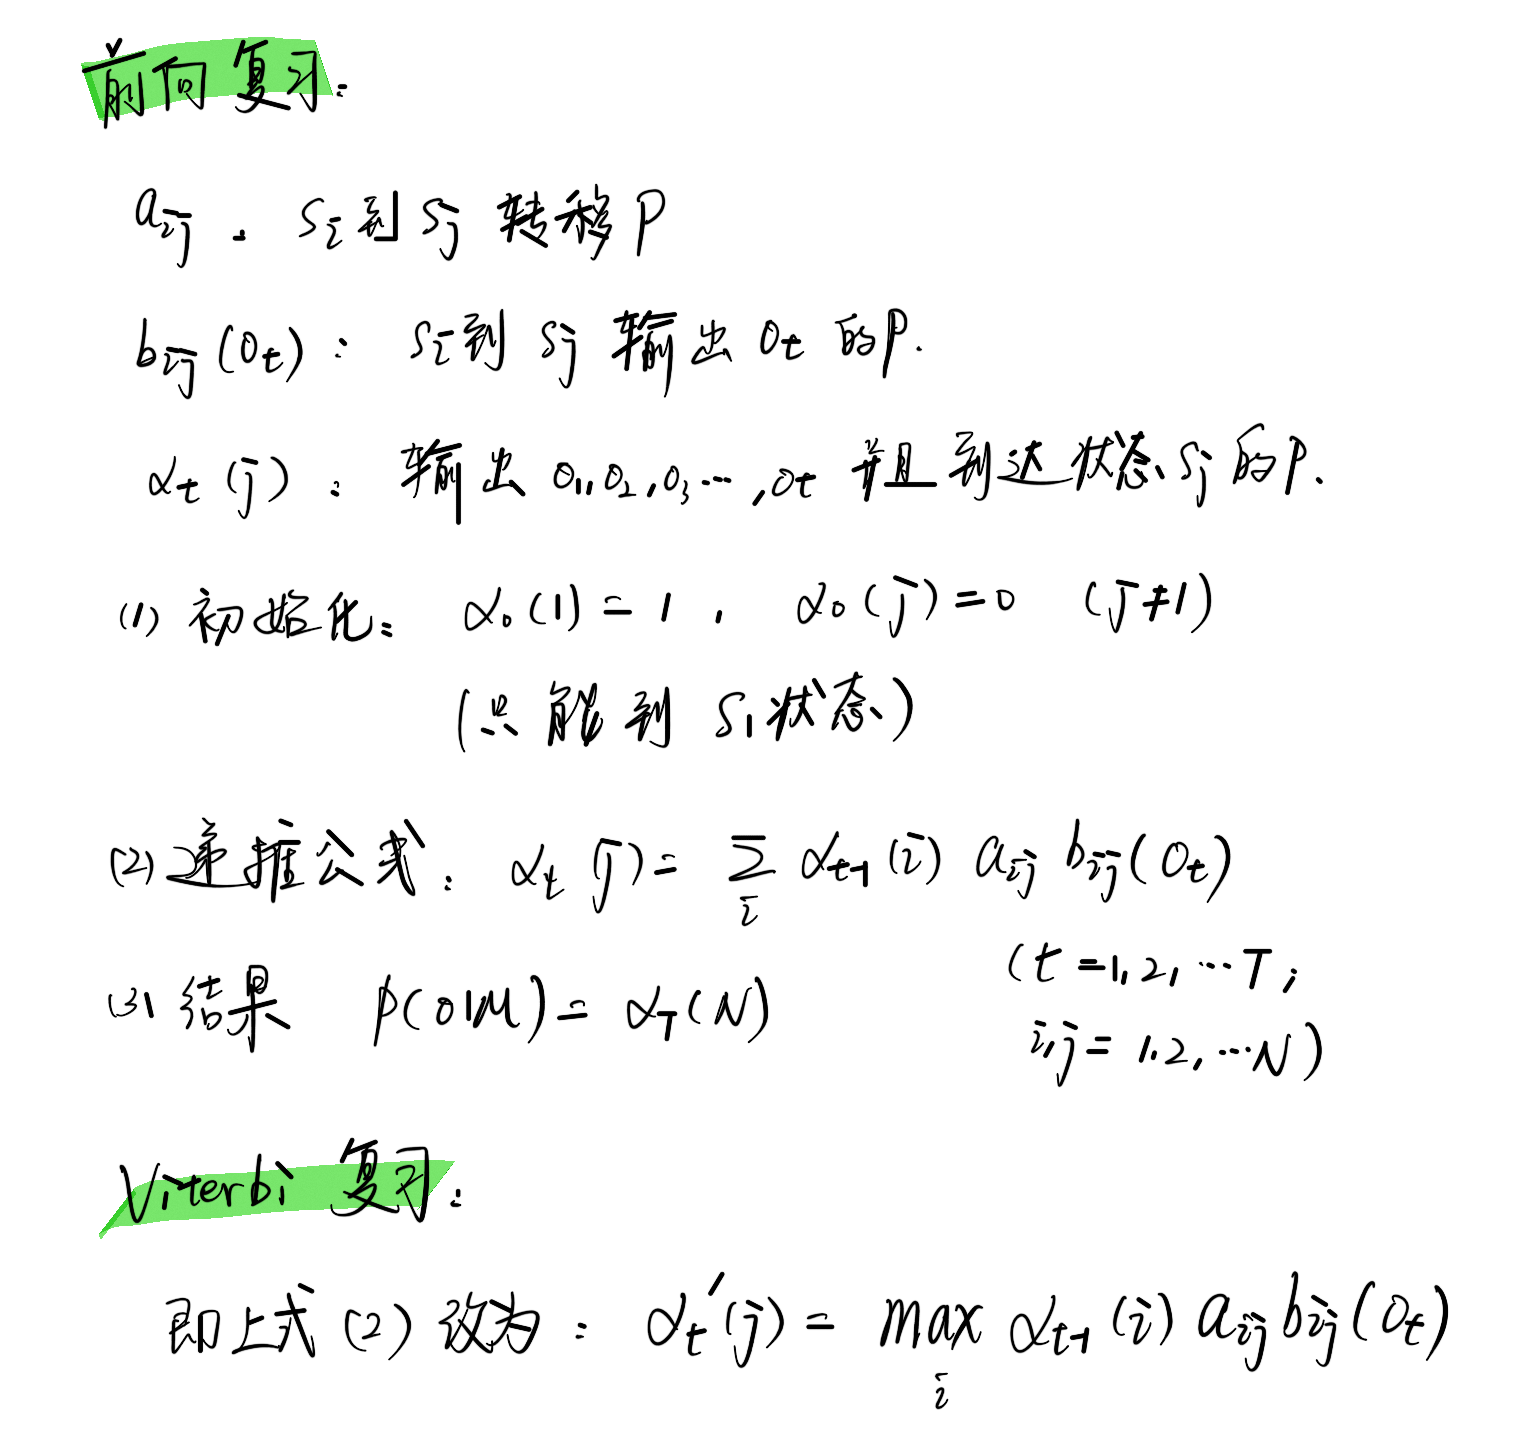 前向复习:
aij . Si到Sj 转移P
bij(Ot): Si到Sj 输出Ot的P.
αt(j): 输出O1,O2,O3…,Ot 并且到达状态Sj的P.
(1) 初始化: α0(1)=1, α0(j)=0 (j≠1)
(只能到S1状态)
(2) 递推公式: αt(j)= ∑i αt-1(i) aij bij(Ot)
(t=1,2,…T;
i,j=1,2,…N)
(3) 结果 P(O|M)=αT(N)
Viterbi 复习:
即上式(2)改为: αt'(j)= max i αt-1(i) aij bij(Ot)